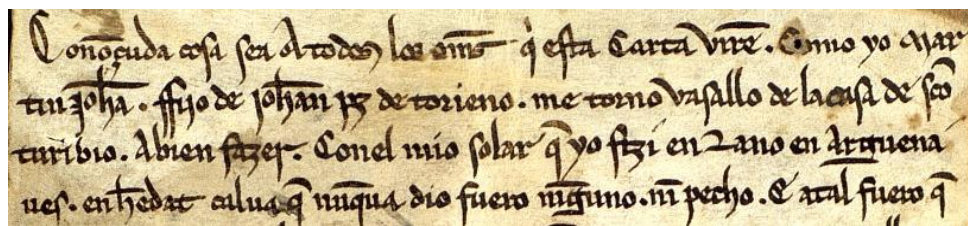 Conoçuda cosa sea A todos los om̅s q̇ esta Carta vire̅. Como yo Mar
tin Joh̅a. ffijo de Joha̅n p̅z de torieno. me torno vasallo de la casa de sc̅o
turibio. A bien fazer. Con el mio solar q̅ yo fizi en Lano en Arguena
ues. en h̅edat calua q̅ nu̅qua dio fuero ni̅guno. ni̅ pecho. E atal fuero q̅